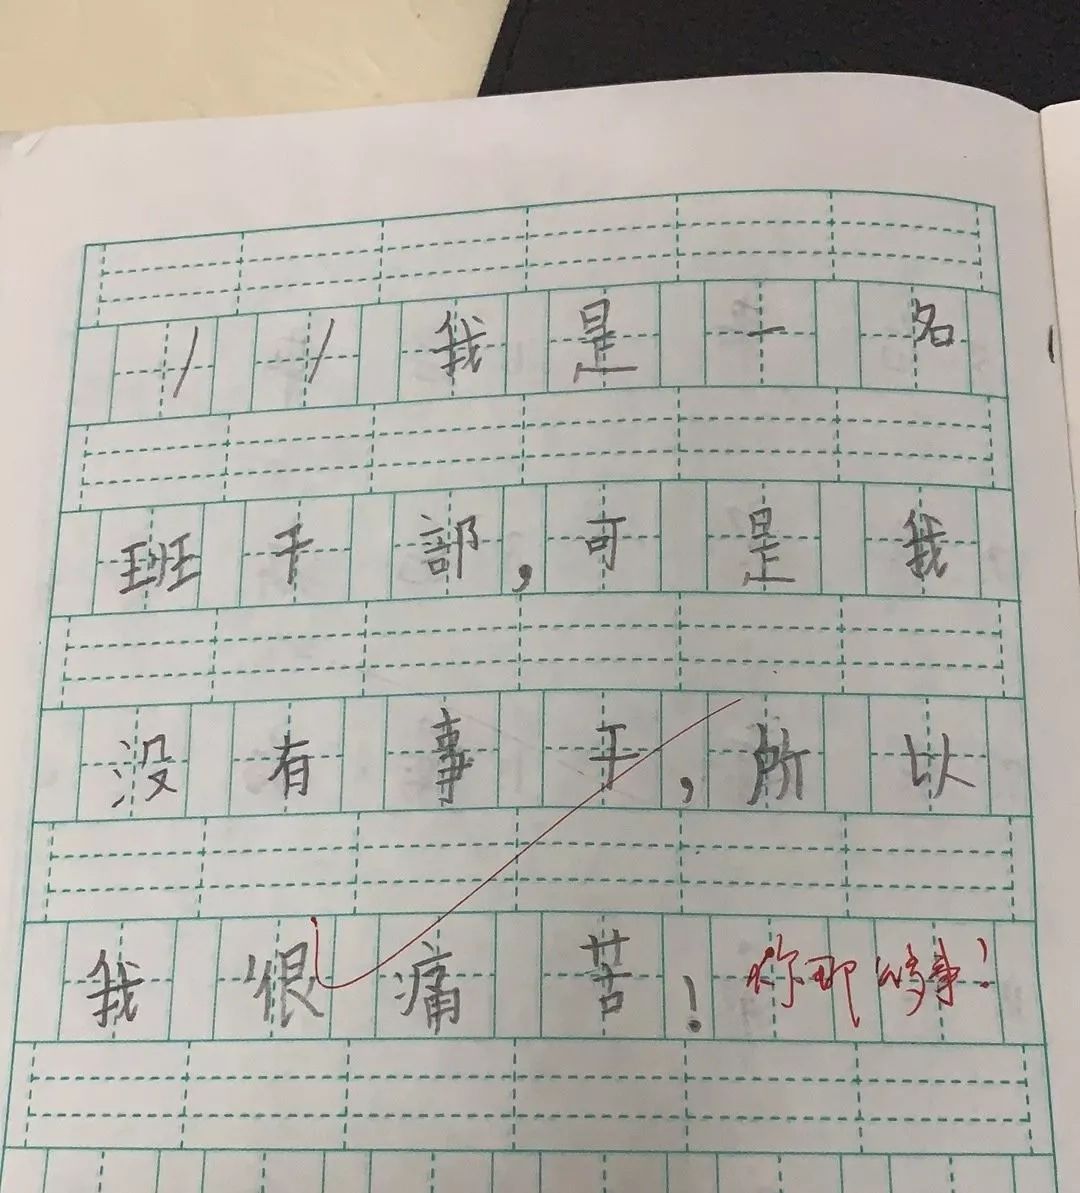 //我是一名
班干部，可是我
没有事干，所以
我很痛苦！你够事！